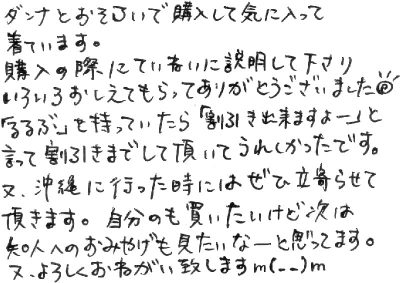 ダンナとおそろいで購入して気に入って
着ています。
購入の際にていねいに説明して下さり
いろいろおしえてもらってありがとうございました
「るるぶ」を持っていたら「割引き出来ますよー」と
言って割引きまでして頂いてうれしかったです。
又、沖縄に行った時にはぜひ立寄らせて
頂きます。自分のも買いたいけど次は
知人へのおみやげも見たいなーと思ってます。
又、よろしくおねがい致しますm(_ _)m